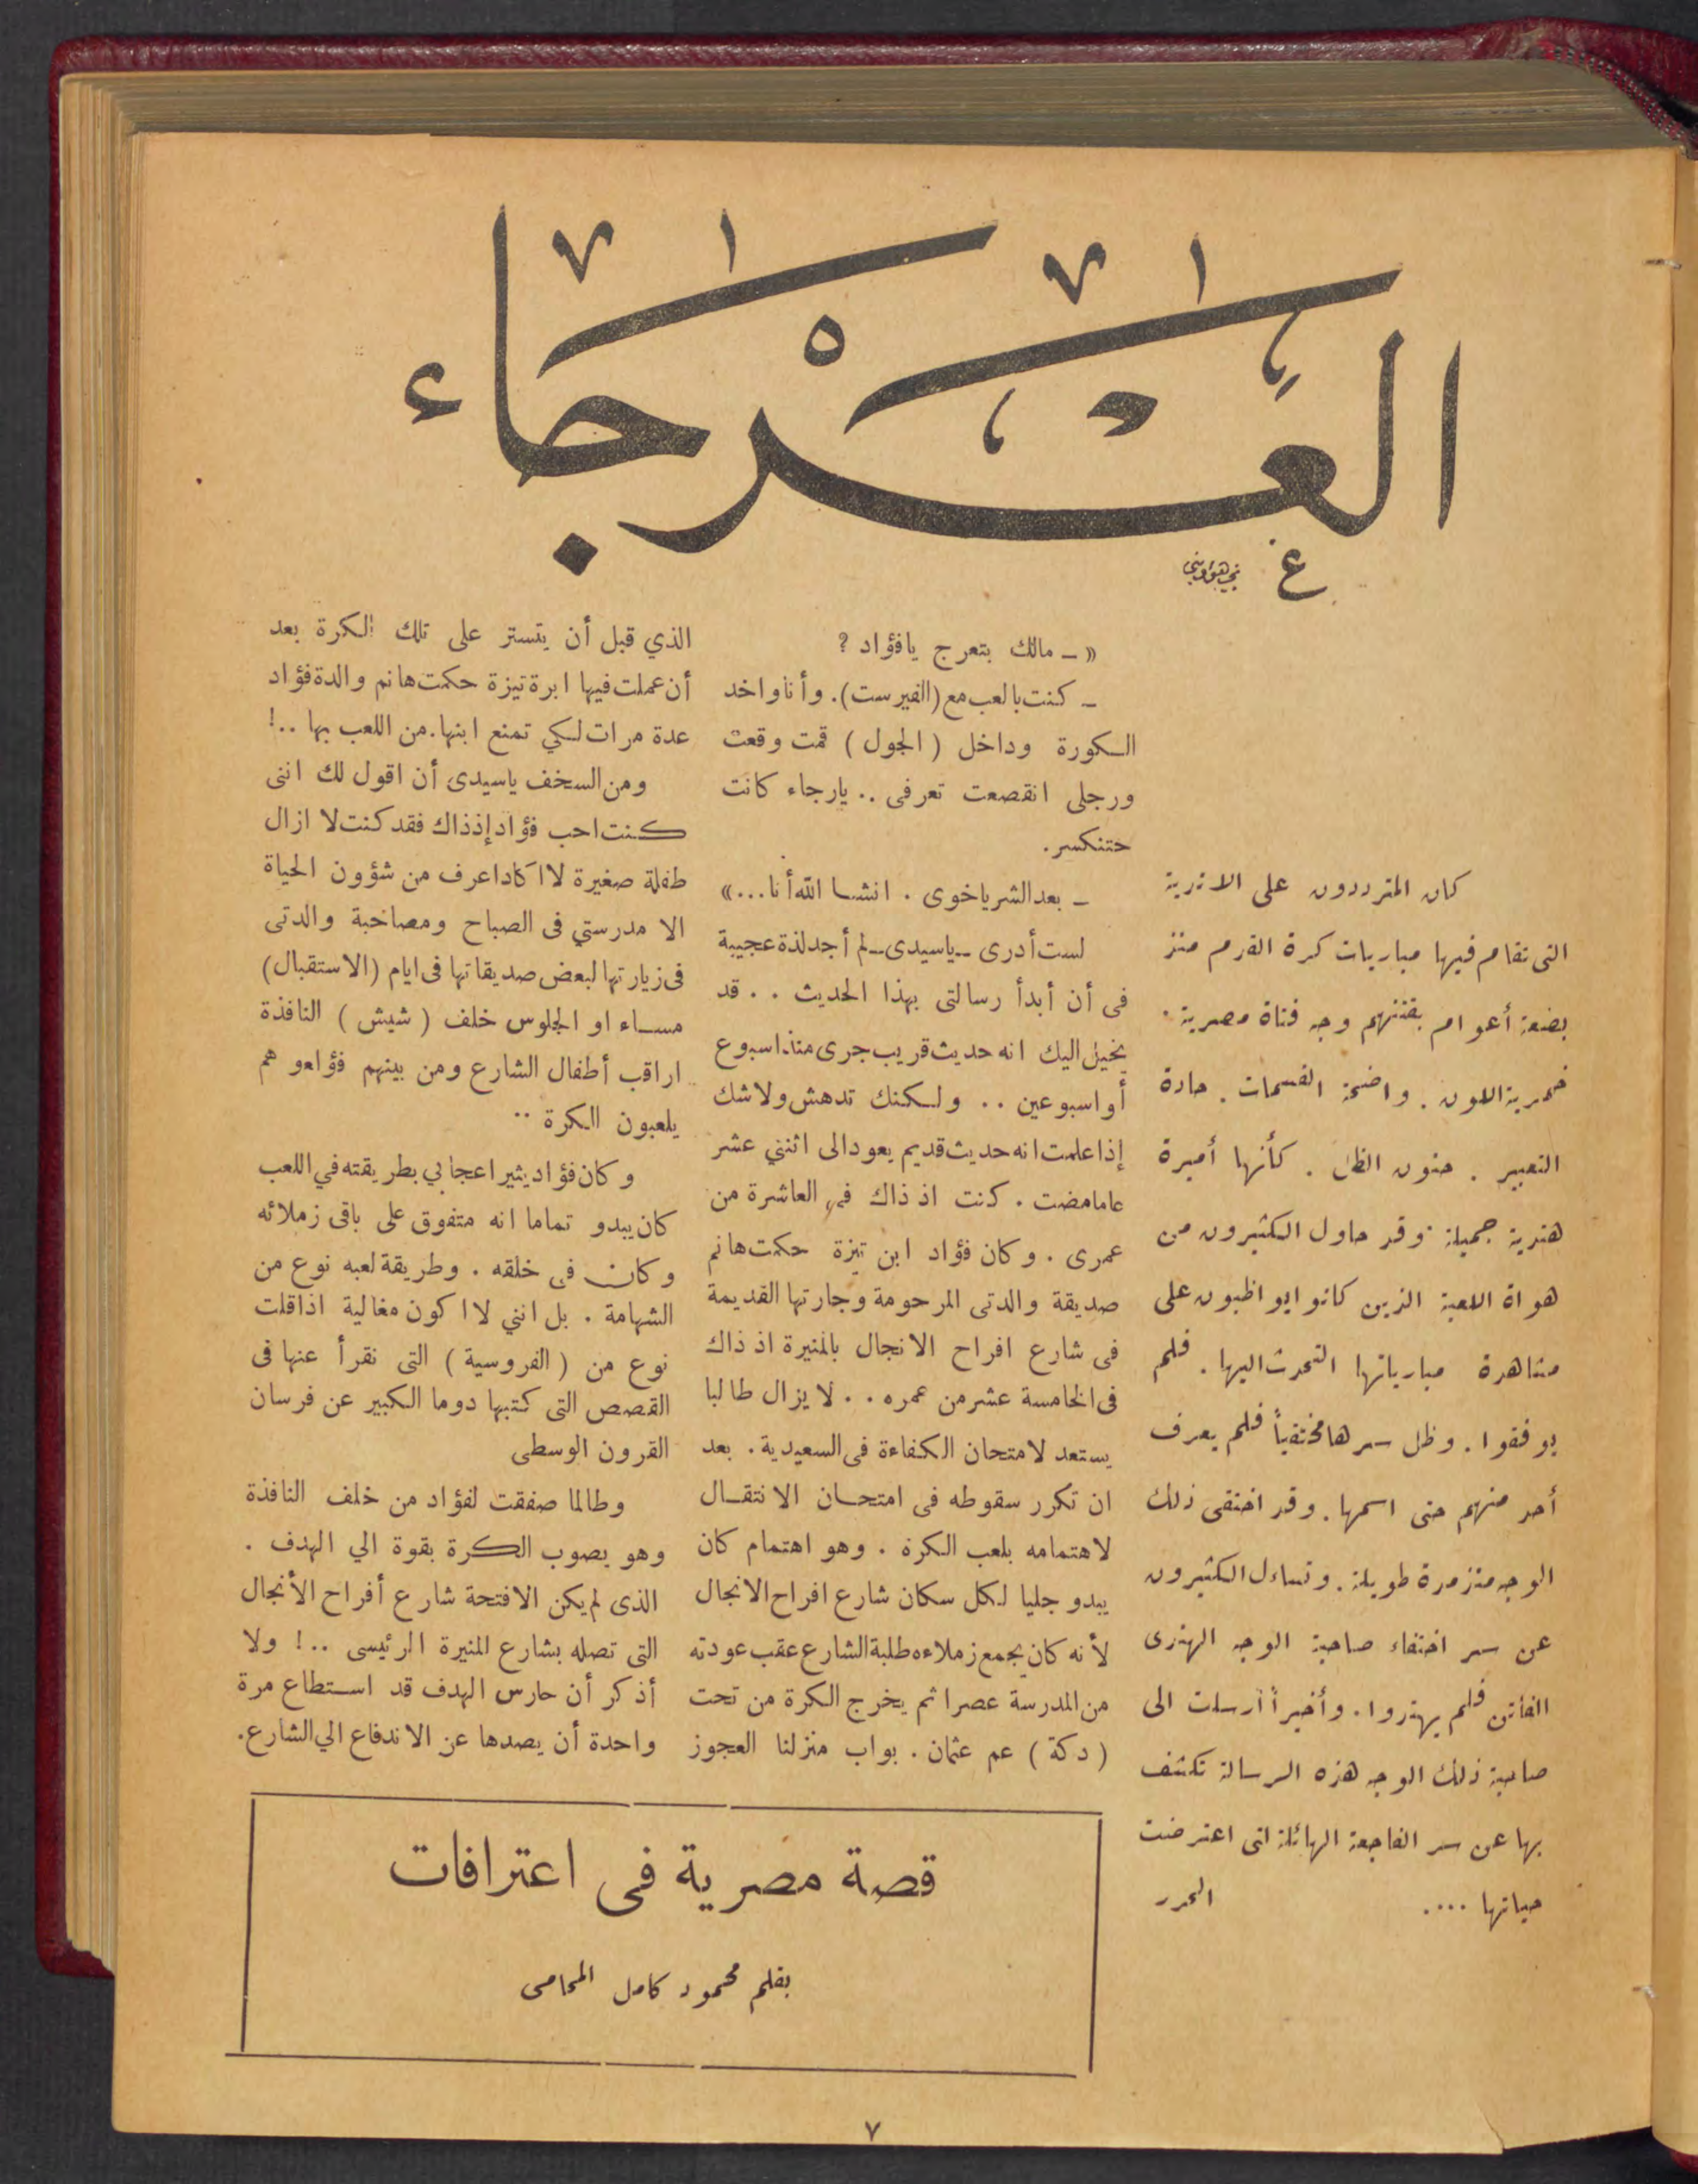 العرجاء
كان المترددون على الاندية
التى تقام فيها مباريات كرة القدم منذ
بضعة أعوام يفتنهم وجه فتاة مصرية .
خمرية اللون . واضحة القسمات . حادة
التعبير . حنون الظل . كأنها أميرة
هندية جميلة وقد حاول الكثيرون من
هواة اللعبة الذين كانوا يواظبون على
مشاهدة مبارياتها التحدث اليها . فلم
يوفقوا . وظل سرها مختفياً فلم يعرف
أحد منهم حتى اسمها . وقد اختفى ذلك
الوجه منذ مدة طويلة . وتساءل الكثيرون
عن سر اختفاء صاحبة الوجه الهندى
الفاتن فلم يهتدوا . وأخيراً أرسلت الى
صاحبة ذلك الوجه هذه الرسالة تكشف
بها عن سر الفاجعة الهائلة التى اعترضت
حياتها .... المحرر
« ـ مالك بتعرج يافؤاد ؟
ـ كنت بالعب مع (الفيرست). وأنا واخد
الكورة وداخل ( الجول ) قمت وقعت
ورجلى انقصعت تعرفى .. يارجاء كانت
حتنكسر .
ـ بعد الشر ياخوى . انشا الله أنا ...»
لست أدرى ـ ياسيدى ـ لم أجد لذة عجيبة
فى أن أبدأ رسالتى بهذا الحديث . . قد
يخيل اليك انه حديث قريب جرى منذ اسبوع
أو اسبوعين .. ولكنك تدهش ولاشك
إذا علمت انه حديث قديم يعود الى اثنني عشر
عاما مضت . كنت اذ ذاك فى العاشرة من
عمرى . وكان فؤاد ابن تيزة حكمت هانم
صديقة والدتى المرحومة وجارتها القديمة
فى شارع افراح الانجال بالمنيرة اذ ذاك
فى الخامسة عشر من عمره . . لا يزال طالبا
يستعد لامتحان الكفاءة فى السعيدية . بعد
ان تكرر سقوطه فى امتحان الانتقال
لاهتمامه بلعب الكرة . وهو اهتمام كان
يبدو جليا لكل سكان شارع افراح الانجال
لأنه كان يجمع زملاءه طلبة الشارع عقب عودته
من المدرسة عصرا ثم يخرج الكرة من تحت
( دكة ) عم عثمان . بواب منزلنا العجوز
الذي قبل أن يتستر على تلك الكرة بعد
أن عملت فيها ابرة تيزة حكمت هانم والدة فؤاد
عدة مرات لكي تمنع ابنها . من اللعب بها ..!
ومن السخف ياسيدى أن اقول لك اننى
كنت احب فؤاد إذ ذاك فقد كنت لا ازال
طفلة صغيرة لا اكاد اعرف من شؤون الحياة
الا مدرستي فى الصباح ومصاحبة والدتى
فى زيارتها لبعض صديقاتها فى ايام (الاستقبال)
مساء او الجلوس خلف ( شيش ) النافذة
اراقب أطفال الشارع ومن بينهم فؤاعو هم
يلعبون الكرة ..
وكان فؤاد يثير اعجابي بطريقته في اللعب
كان يبدو تماما انه متفوق على باقى زملائه
وكان فى خلقه . وطريقة لعبه نوع من
الشهامة . بل انني لا اكون مغالية اذا قلت
نوع من ( الفروسية ) التى نقرأ عنها فى
القصص التى كتبها دوما الكبير عن فرسان
القرون الوسطى
وطالما صفقت لفؤاد من خلف النافذة
وهو يصوب الكرة بقوة الي الهدف .
الذى لم يكن الا فتحة شارع أفراح الأنجال
التى تصله بشارع المنيرة الرئيسى ..! ولا
أذكر أن حارس الهدف قد استطاع مرة
واحدة أن يصدها عن الاندفاع الي الشارع .
قصة مصرية فى اعترافات
بقلم محمود كامل المحامى
٧